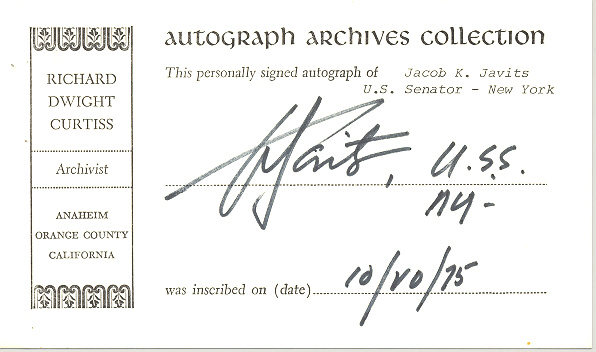 AUTOGRAPH ARCHIVES COLLECTION
This personally signed autograph of Jacob K. Javits
U.S. Senator - New York
RICHARD
DWIGHT
CURTISS
Archivist
ANAHEIM
ORANGE COUNTY
CALIFORNIA
JJavits, U.S.S.
NY-
was inscribed on (date) 10/20/75